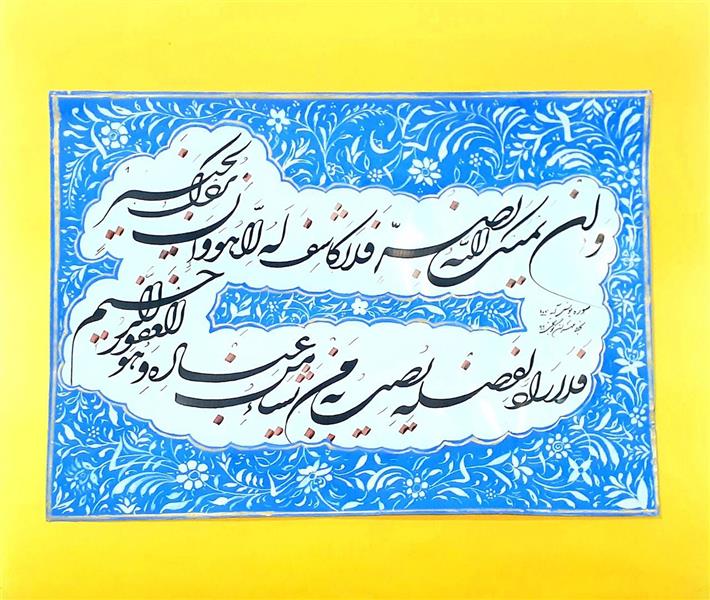 وان یمسک الله بضر فلا کاشف له الا هو وان یردک بخیر
فلا راد لفضله یصیب به من یشاء من عباده وهو الغفور الرحیم
سوره یونس آیه ۱۰۷